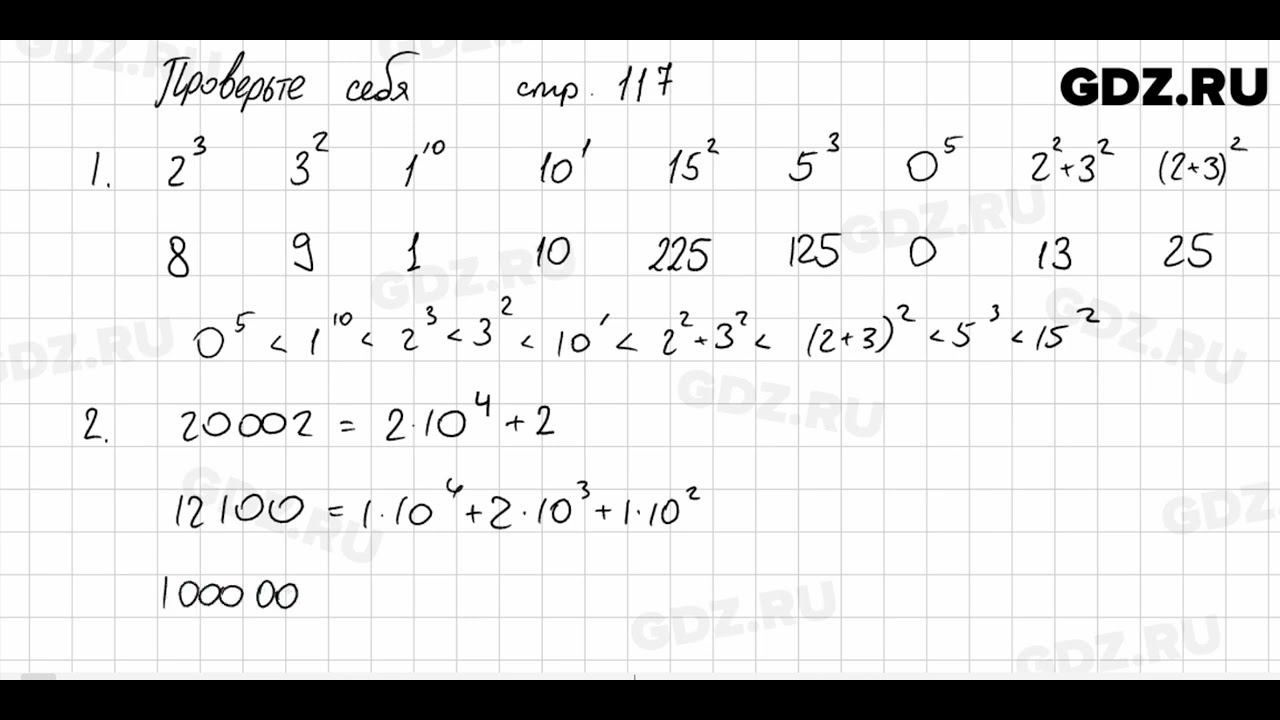 Проверьте себя стр. 117
GDZ.RU
1. 2³ 3² 1¹⁰ 10¹ 15² 5³ 0⁵ 2²+3² (2+3)²
8 9 1 10 225 125 0 13 25
0⁵ < 1¹⁰ < 2³ < 3² < 10¹ < 2²+3² < (2+3)² < 5³ < 15²
2. 20002 = 2·10⁴ + 2
12100 = 1·10⁴ + 2·10³ + 1·10²
100000